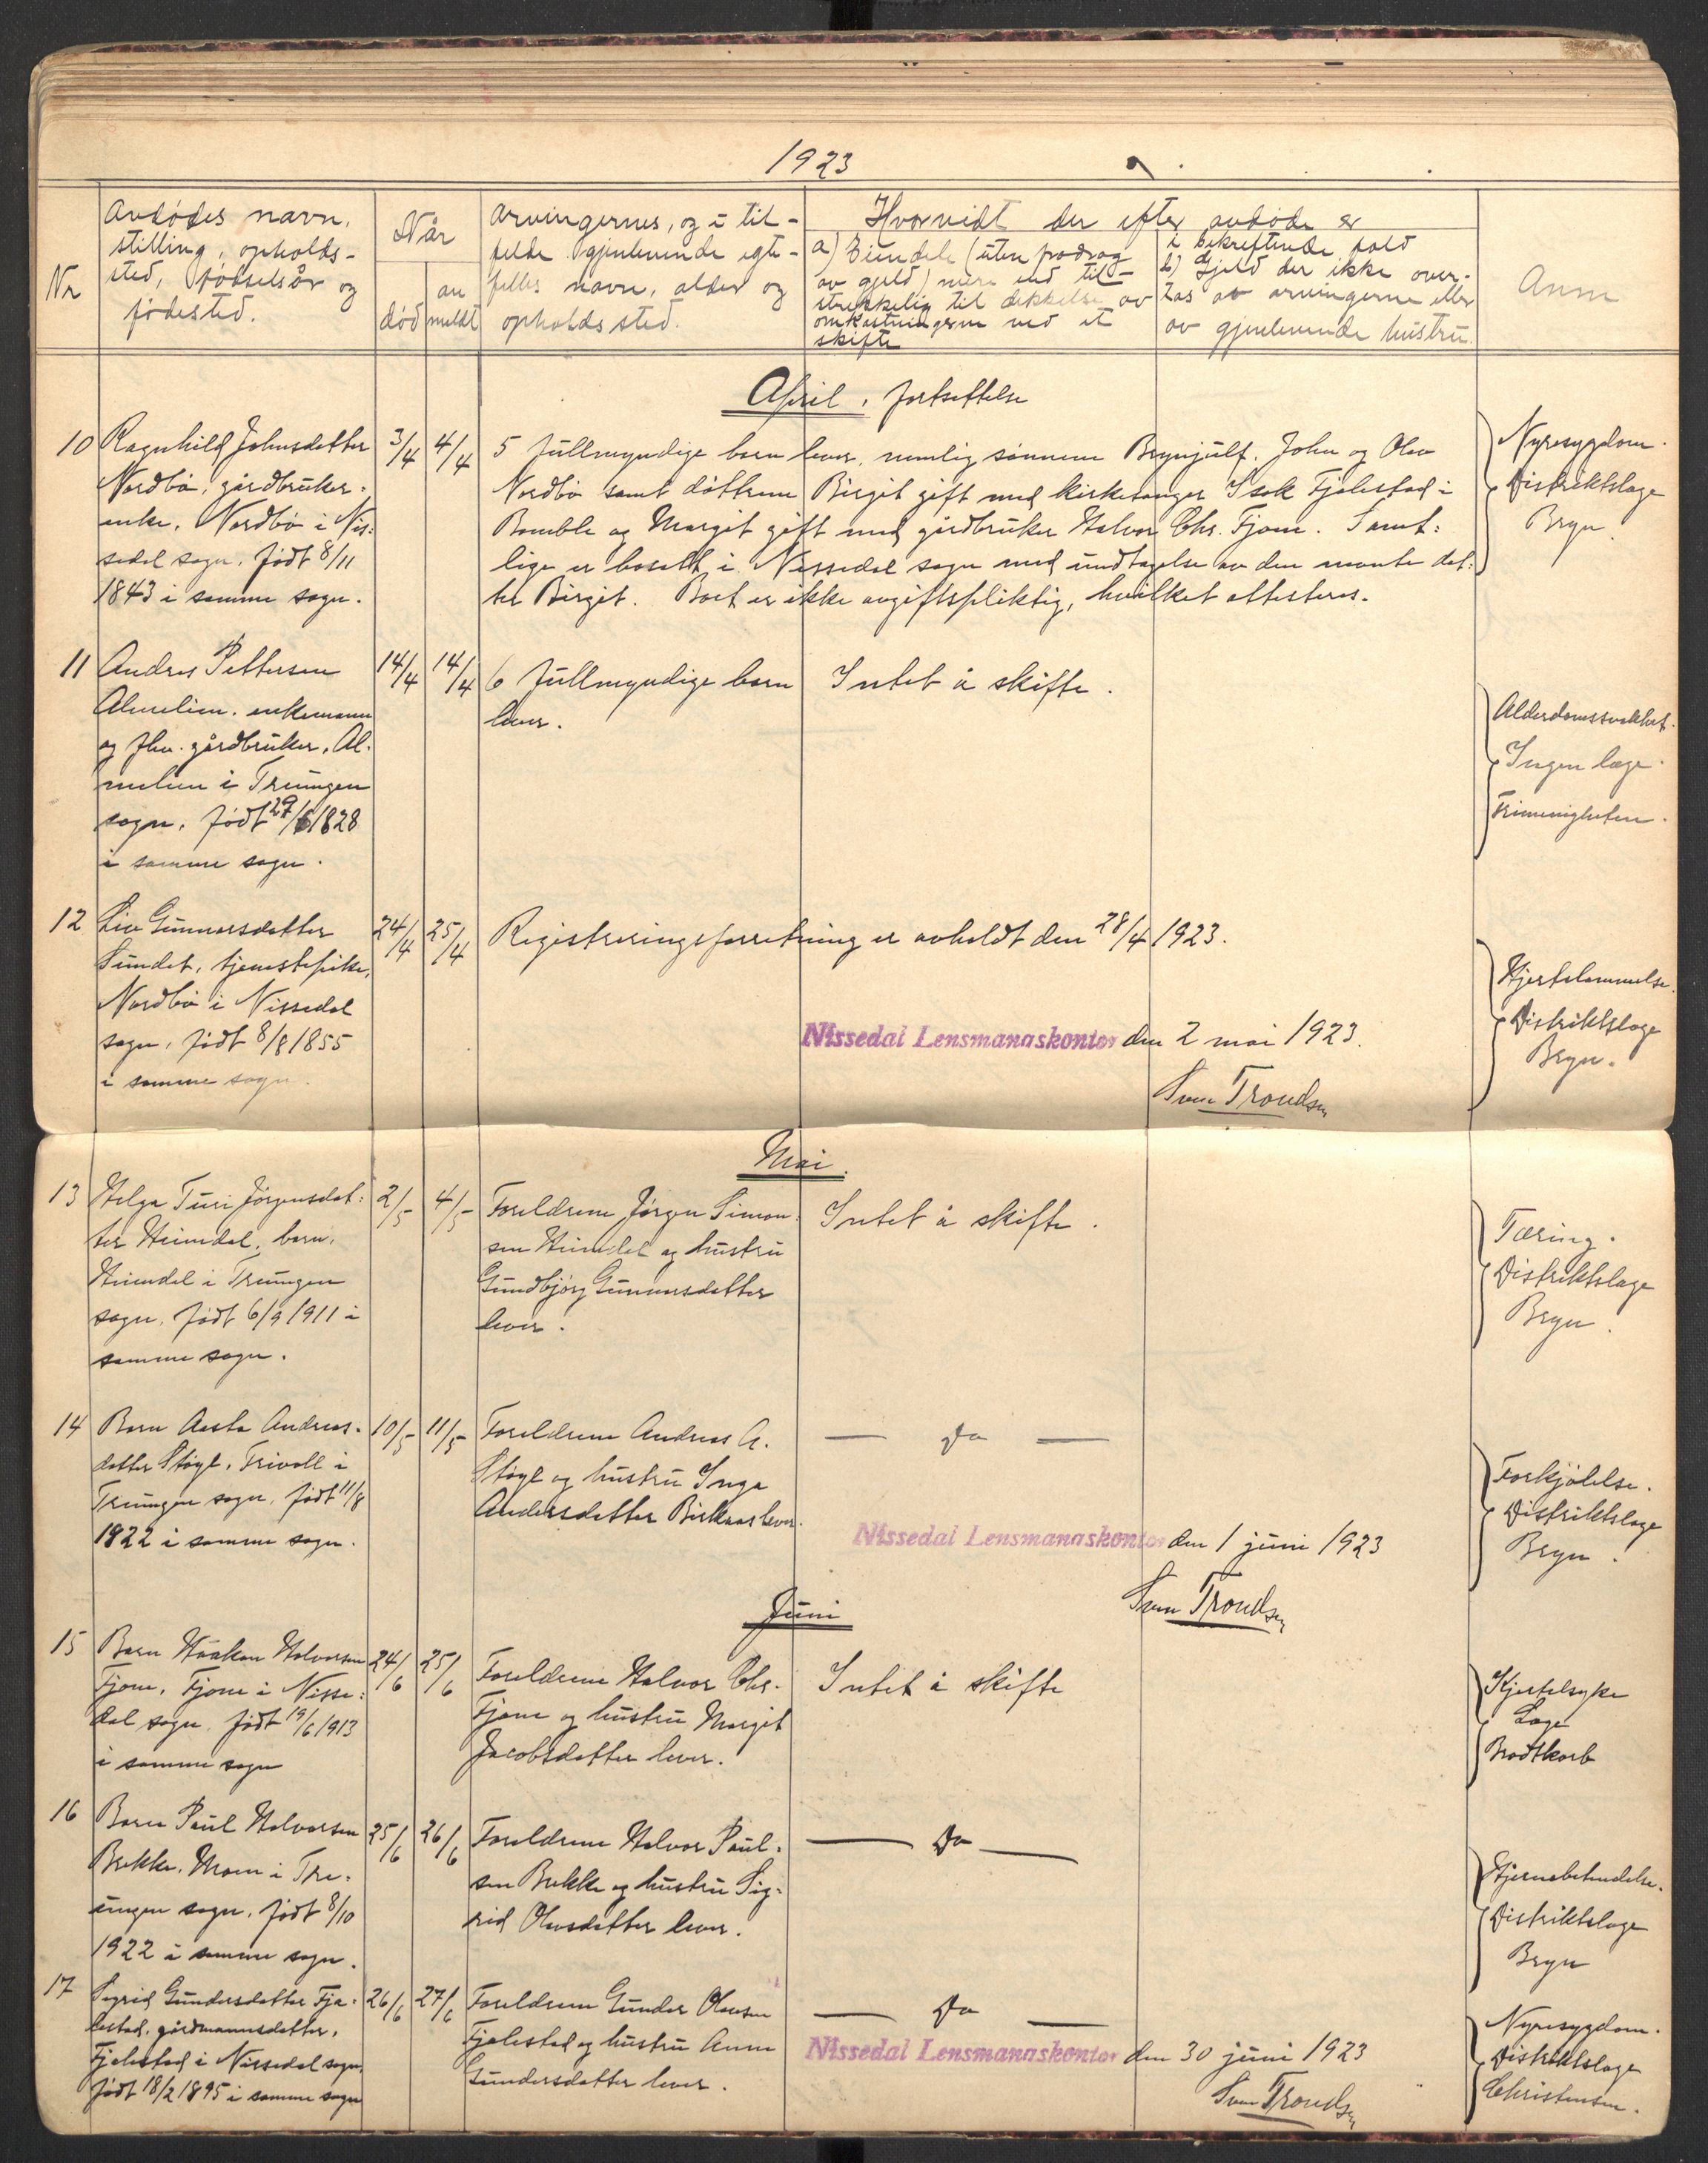 1923
Nr
Avdødes navn,
stilling, opholds-
sted, fødselsår og
fødested.
Når
død
an
meldt
Arvingernes, og i til-
felde gjenlevende egte-
felles navn, alder og
opholdssted.
Hvorvidt der efter avdøde er
a) Eiendele (uten fradrag
av gjeld) mere end til-
strekkelig til dekkelse av
omkostningerne ved et
skifte
i bekreftende fald
b) Gjeld der ikke over-
tas av arvingerne eller
av gjenlevende hustru.
Anm
April. fortsettelse
10 Ragnhild Johnsdatter 3/4 4/4
Nordbø, gårdbruker-
enke, Nordbø i Nis-
sedal sogn, født 8/11
1843 i samme sogn.
5 fullmyndige barn lever, nemlig sønnene Brynjulf, John og Olav
Nordbø samt døttrene Birgit gift med kirkesanger Isak Fjalestad i
Bamble og Margit gift med gårdbruker Halvor Chr. Fjone. Samt-
lige er bosatt i Nissedal sogn med undtagelse av den nevnte dat-
ter Birgit. Boet er ikke avgiftspliktig, hvilket attesteres.
Nyresygdom.
Distriktslæge
Bryn.
11 Andres Pettersen 14/4 14/4
Almelien, enkemann
og fhv. gårdbruker, Al-
melien i Treungen
sogn, født 29/6 1828
i samme sogn.
6 fullmyndige barn
lever.
Intet å skifte.
Alderdomssvakhet.
Ingen læge.
12 Liv Gunnarsdatter 24/4 25/4
Sundet, tjenestepike,
Nordbø i Nissedal
sogn, født 8/8 1855
i samme sogn.
Registreringsforretning er avholdt den 28/4 1923.
Hjertelammelse.
Distriktslæge
Bryn.
Nissedal Lensmannskontor den 2 mai 1923.
Sven Trondsen
Mai.
13 Helga Turi Jørgensdat- 2/5 4/5
ter Heimdal, barn,
Heimdal i Treungen
sogn, født 6/9 1911 i
samme sogn.
Foreldrene Jørgen Simon-
sen Heimdal og hustru
Gundbjørg Gunnarsdatter
lever.
Intet å skifte.
Tæring.
Distriktslæge
Bryn.
14 Barn Aasta Andreas- 10/5 11/5
datter Støyl, Trivoll i
Treungen sogn, født 11/8
1922 i samme sogn.
Foreldrene Andreas A.
Støyl og hustru Inga
Andersdatter Birknes lever.
— Do —
Forkjølelse.
Distriktslæge
Bryn.
Nissedal Lensmannskontor den 1 juni 1923
Sven Trondsen
Juni
15 Barn Haakon Halvorsen 24/6 25/6
Fjone, Fjone i Nisse-
dal sogn, født 19/6 1913
i samme sogn
Foreldrene Halvor Chr.
Fjone og hustru Margit
Jacobsdatter lever.
Intet å skifte
Kjertelsyke
Læge
Brodtkorb
16 Barn Paul Halvorsen 25/6 26/6
Brekke, Moen i Tre-
ungen sogn, født 8/10
1922 i samme sogn.
Foreldrene Halvor Paul-
sen Brekke og hustru Sig-
rid Olavsdatter lever.
— Do —
Hjernebetendelse.
Distriktslæge
Bryn
17 Sigrid Gundersdatter Fja- 26/6 27/6
lestad, gårdmannsdatter,
Fjalestad i Nissedal sogn,
født 18/2 1895 i samme sogn
Foreldrene Gunder Olavsen
Fjalestad og hustru Anne
Gundersdatter lever.
— Do —
Nyresygdom.
Distriktslæge
Christensen.
Nissedal Lensmannskontor den 30 juni 1923
Sven Trondsen